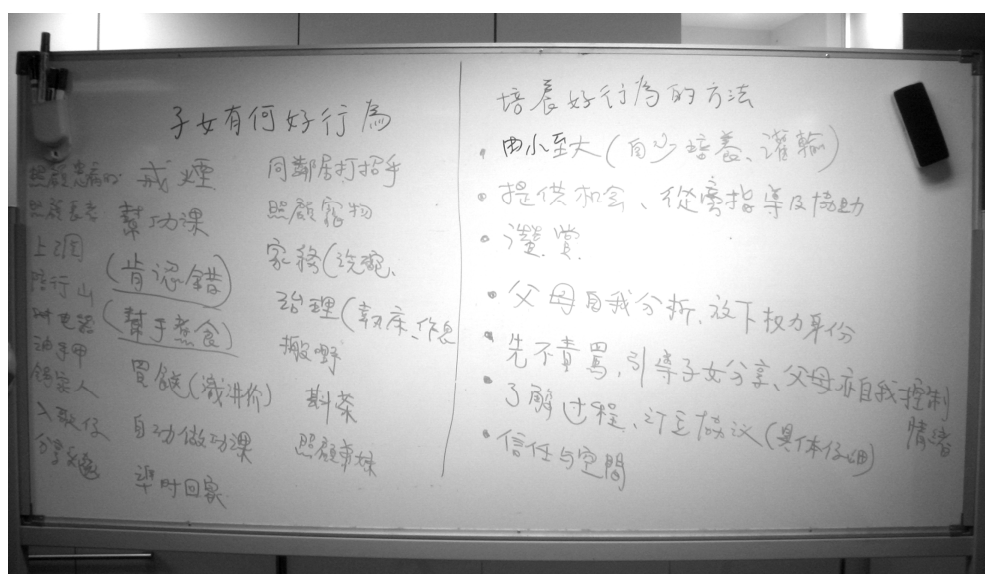 子女有何好行為
照顧患病的
照顧長者
上網
陪行山
錫家人
分享
戒煙
幫功課
(肯認錯)
(幫手煮食)
買餸(識讲价)
自动做功课
準时回家
同鄰居打招乎
照顧寵物
家務(洗碗、
治理(執床、作息
搬嘢
斟茶
照顧弟妹
培养好行為的方法
• 由小至大(自少培養、灌輸)
• 提供机会、從旁指導及协助
• 讚賞
• 父母自我分析、放下权力身份
• 先不責罵,引導子女分享、父母亦自我控制情緒
• 了解过程、订立协议(具体仔细)
• 信任与空間